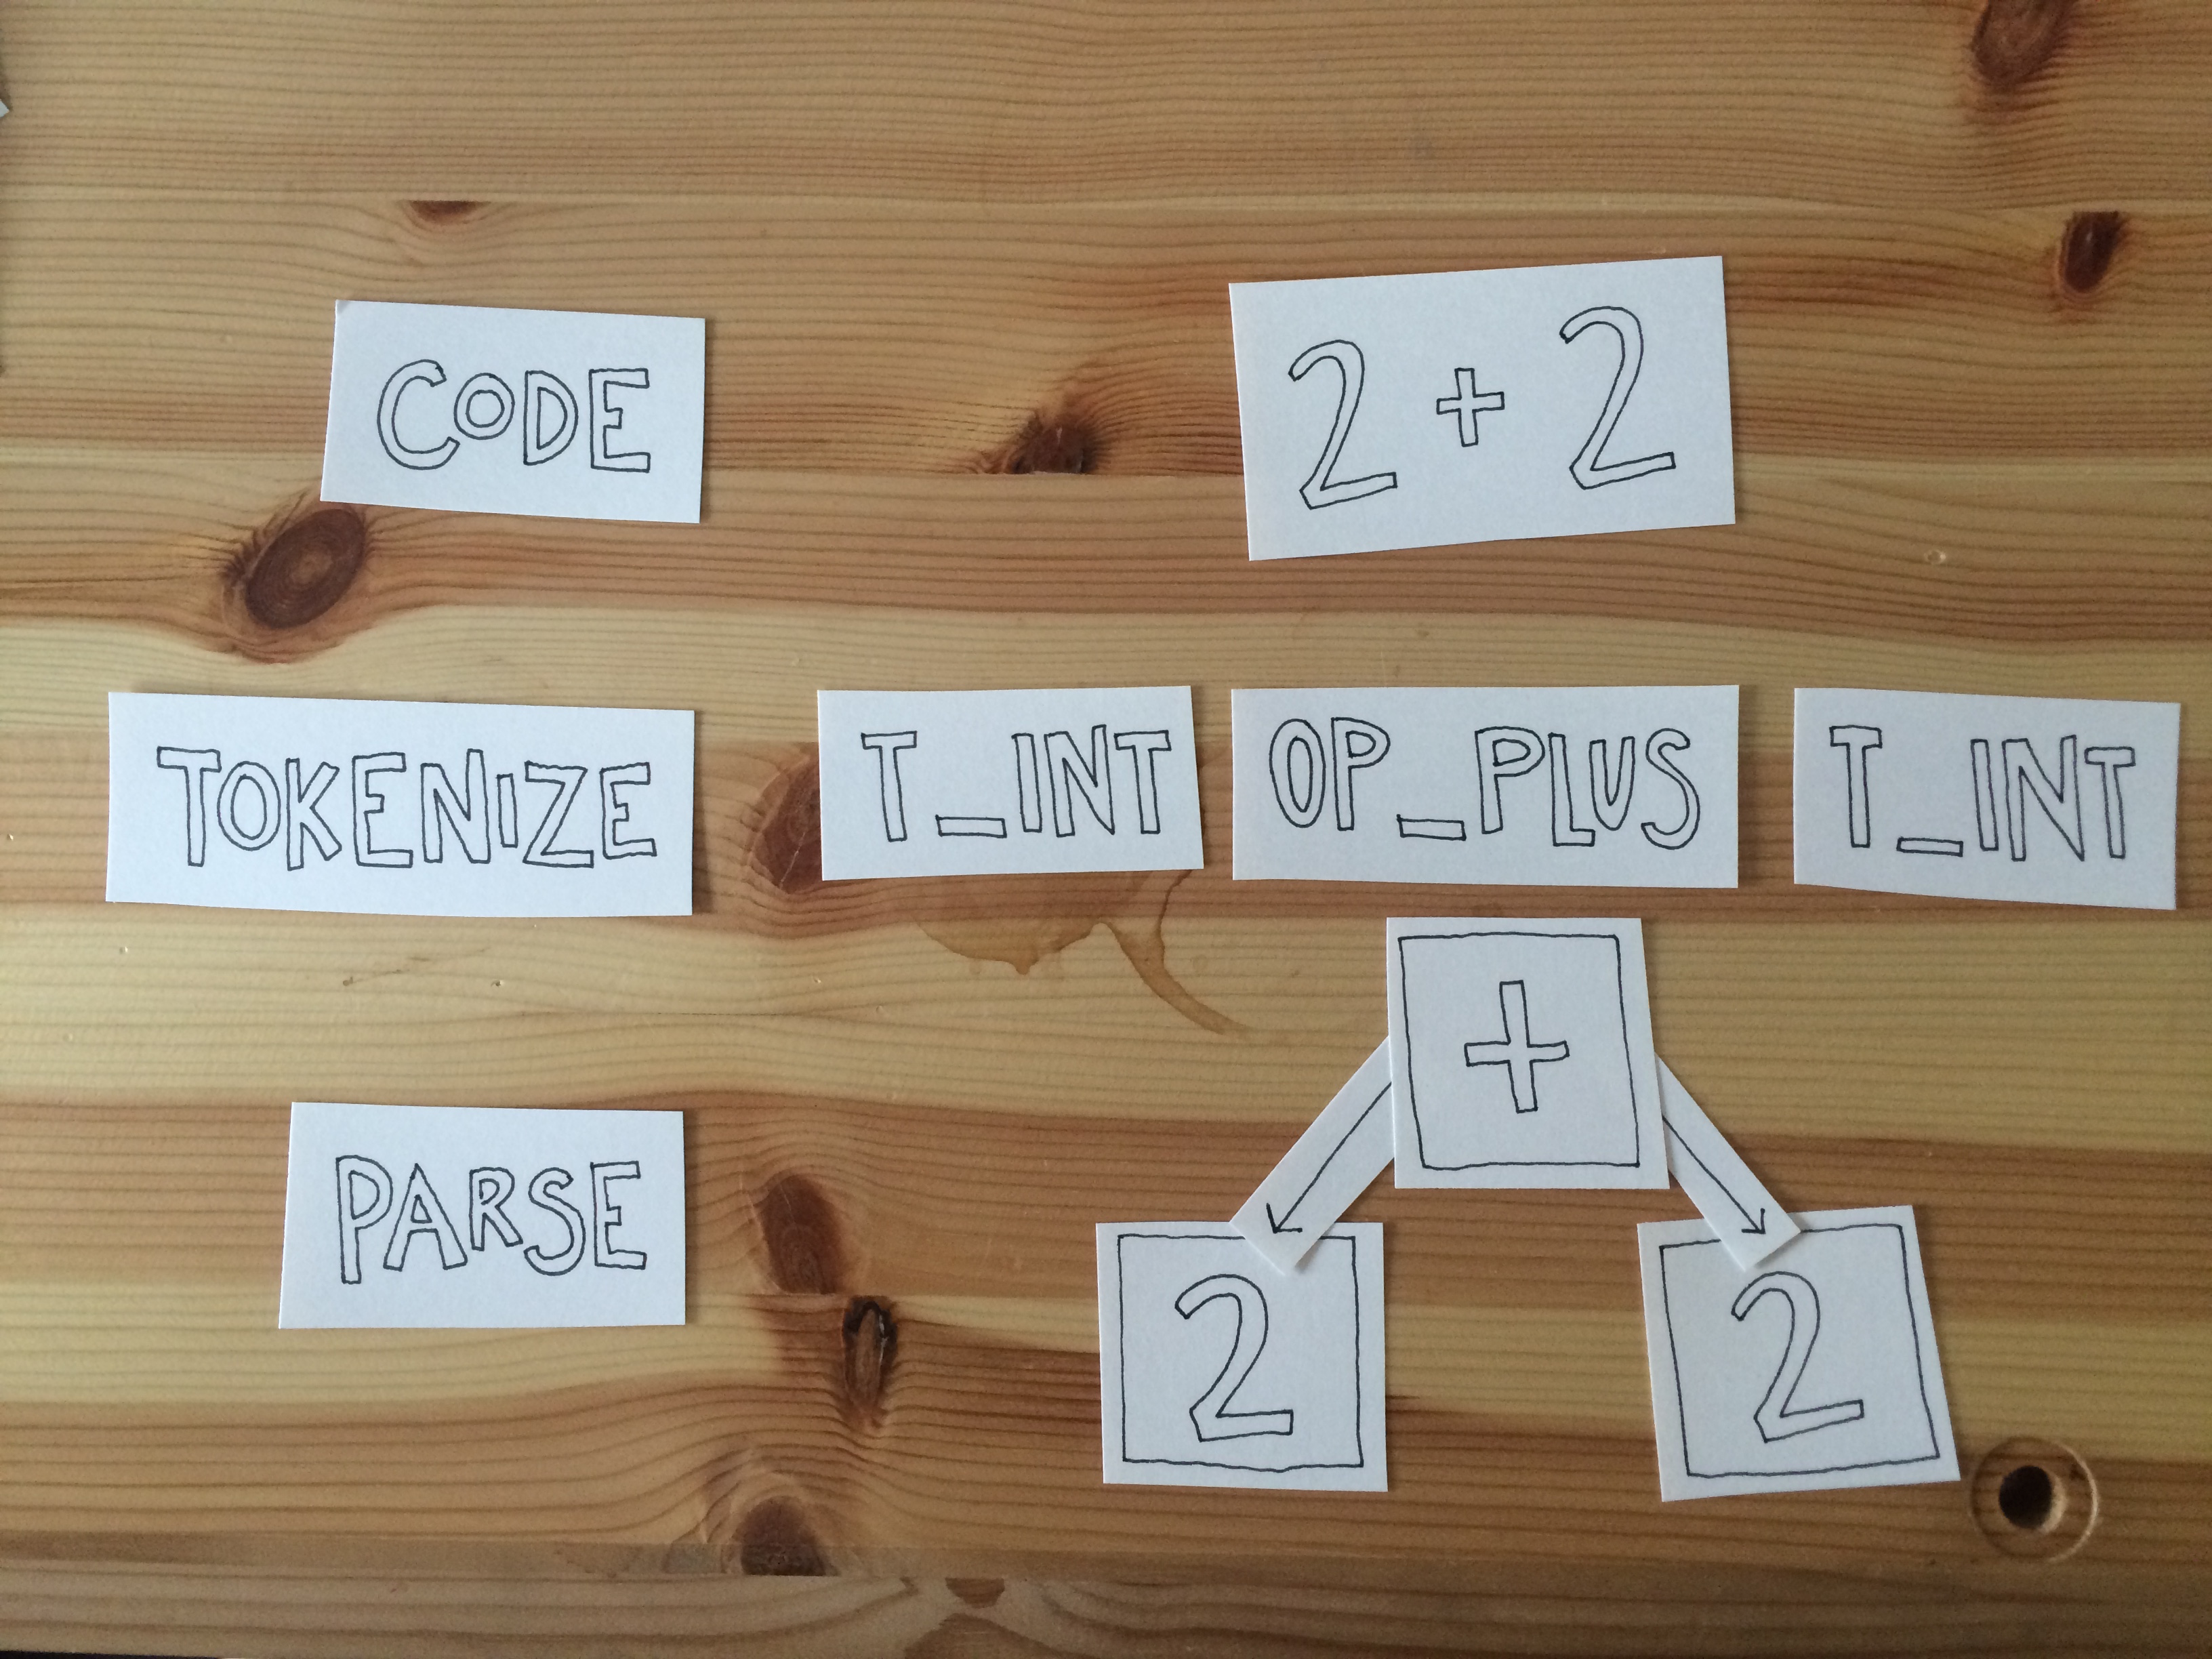 CODE 2 + 2
TOKENIZE T_INT OP_PLUS T_INT
+
PARSE
2 2